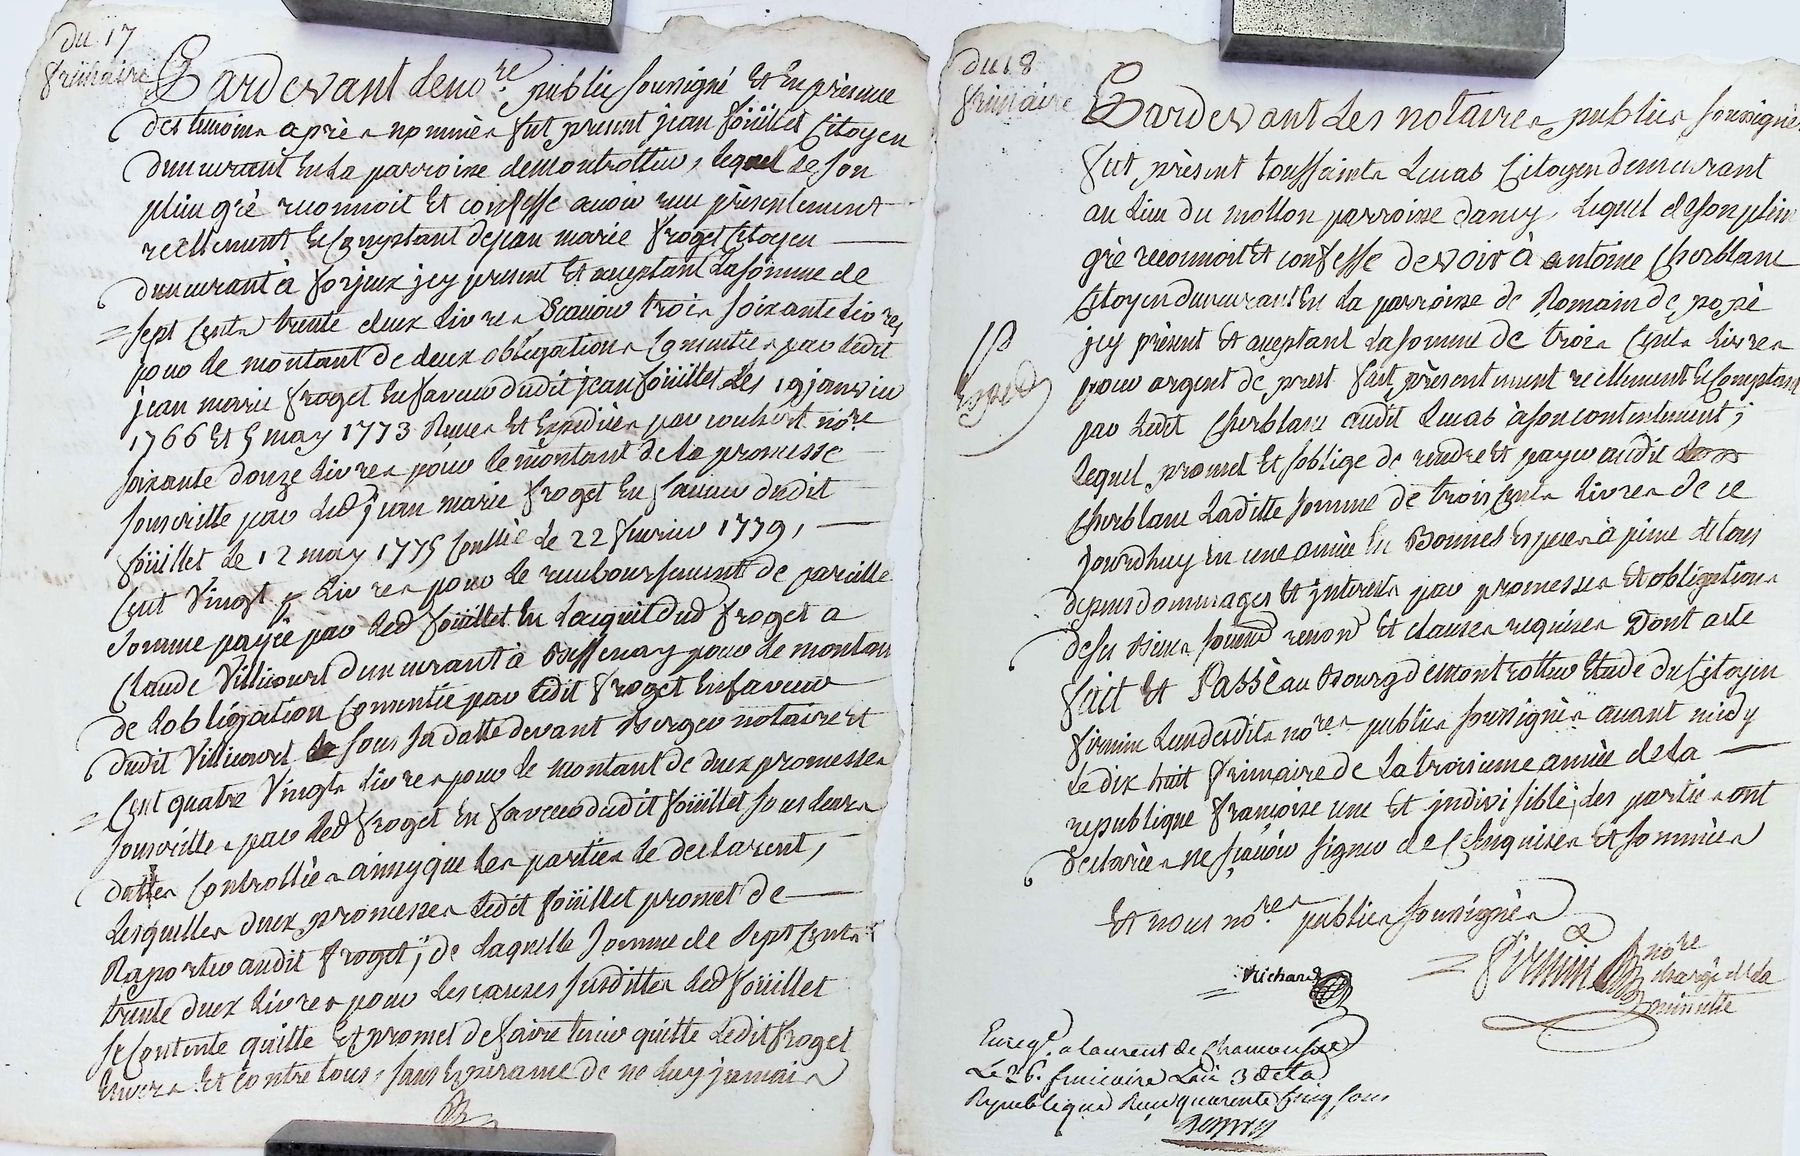 du 17
frimaire
Pardevant le no.re public soussigné Et En présence
des temoins après nommés fut present jean föuillet Citoyen
demeurant En la parroisse de montrottier, lequel de son
plein gré reconnoit Et confesse avoir reçu présentement
reellement Et Comptant de jean marie froget Citoyen
demeurant à forjeux jcy present Et acceptant La somme de
sept Cents trente deux Livres Scavoir trois soixante Livres
pour le montant de deux obligations Consenties par Ledit
jean marie froget En faveur dudit jean föuillet Les 19 janvier
1766 Et 5 may 1773 Recues Et Expediées par no.re
soixante douze Livres pour le montant de la promesse
sousscritte par Led jean marie froget En faveur dudit
föuillet le 12 may 1775 Contllée le 22 fevrier 1779,
Cent Vingt Livres pour le remboursement de pareille
somme payée par Led föuillet En Lacquit dud froget a
Claude Villicourt demeurant à Bessenay pour le montant
de Lobligation Consentie par Ledit froget En faveur
dudit Villicourt sous sa datte devant Berger notaire Et
Cent quatre Vingts Livres pour le montant de deux promesses
sousscrittes par Led froget En faveur dudit föuillet sous Leurs
dattes Controllées ainsy que les parties le declarent,
Lesquelles deux promesses Ledit föuillet promet de
Raporter audit froget; de Laquelle somme de Sept Cents
trente deux Livres pour Les causes susdittes Led föuillet
se Contente quitte Et promet de faire tenir quitte Ledit froget
Envers Et contre tous, sans Esperance de ne Luy jamais
du 18
frimaire
Pardevant Les notaires publics soussignés
fut présent toussaints Lucas Citoyen demeurant
au Lieu du mollon parroisse dancy, Lequel de son plein
gré reconnoit Et confesse devoir à antoine Cherblanc
Citoyen demeurant En La parroisse de Romain de popé
jcy présent Et acceptant La somme de trois Cents Livres
pour argent de prest fait présentement reellement Et Comptant
par Ledit Cherblanc audit Lucas à son contentement;
Lequel promet Et soblige de rendre Et payer audit
Cherblanc Laditte somme de trois Cents Livres de ce
jourdhuy en une année En Bonnes Especes à peine de tous
depens dommages Et jnterets par promesses Et obligations
de ses Biens soumd renond Et clauses requises Dont acte
fait Et Passé au Bourg de montrottier Etude du Citoyen
firmin Lun desdits no.res publics soussignés avant midy
Le dix huit frimaire de La troisieme année de La
republique françoise une Et jndivisible; les parties ont
declarées ne sçavoir signer de ce Enquises Et sommées
Exped
Et nous no.res publics soussignés
Richard
firmin no.re
chargé de la
minutte
Enregd. a Laurent de Chamousset
Le 26. frimaire Lan 3 de La
Republique Recu quarente Cinq sous